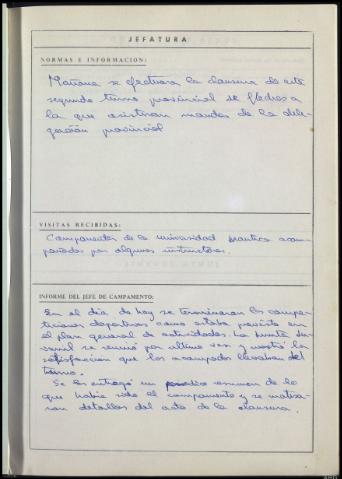 JEFATURA
NORMAS E INFORMACION:
Mañana se efectuara la clausura de este
segundo turno provincial de Flechas a
la que asistiran mandos de la dele-
gación provincial
VISITAS RECIBIDAS:
Campamentos de la universidad acom-
pañados por algunos instructores.
INFORME DEL JEFE DE CAMPAMENTO:
En el dia de hoy se terminaron las compe-
ticiones deportivas como estaba previsto en
el plan general de actividades. La Junta
se reunió por ultima vez y mostró la
satisfaccion que los acampados llevaban del
turno.
Se les entregó un resumen de lo
que habia sido el campamento y se
detalles del acto de la clausura.